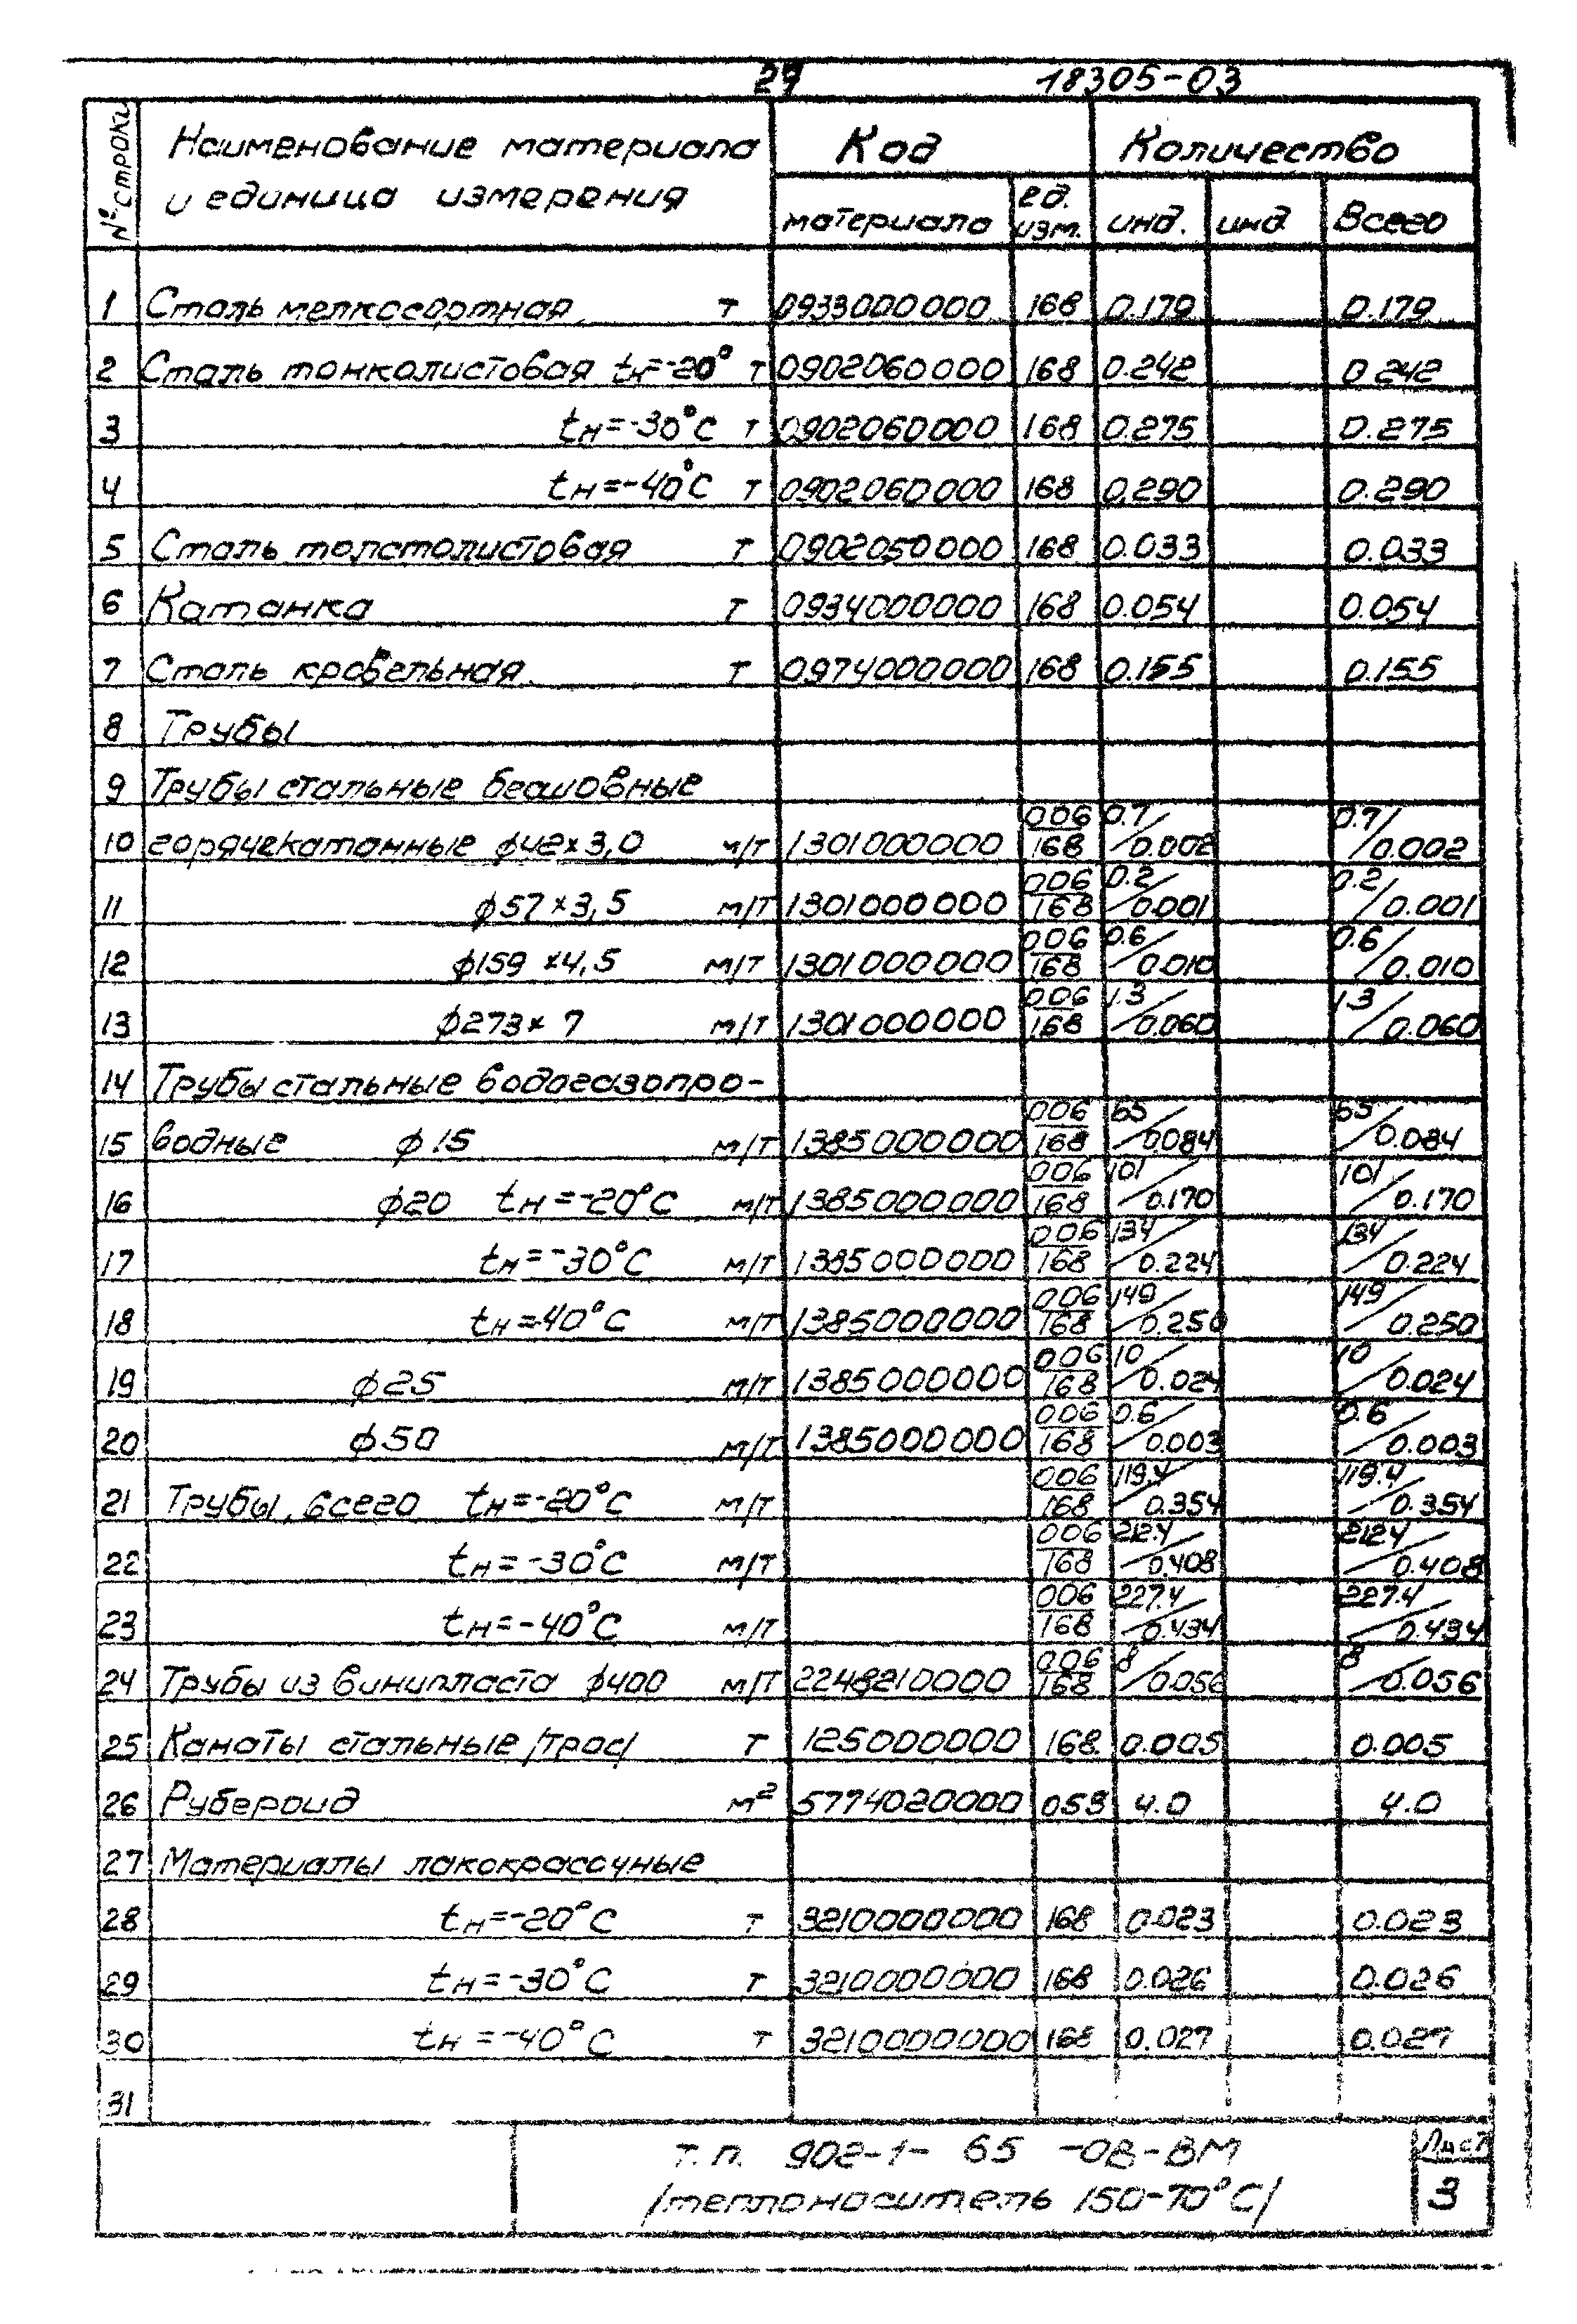 29 18305-03
№ строки Наименование материала и единица измерения Код Количество
материала ед. изм. инд. инд Всего
1 Сталь мелкосортная т 0933000000 168 0.179 0.179
2 Сталь тонколистовая tн=-20° т 0902060000 168 0.242 0.242
3 tн=-30°С т 0902060000 168 0.275 0.275
4 tн=-40°С т 0902060000 168 0.290 0.290
5 Сталь толстолистовая т 0902050000 168 0.033 0.033
6 Катанка т 0934000000 168 0.054 0.054
7 Сталь кровельная т 0974000000 168 0.155 0.155
8 Трубы
9 Трубы стальные бесшовные
10 горячекатанные ф42×3,0 м/т 1301000000 006/168 0.7/0.002 0.7/0.002
11 ф57×3,5 м/т 1301000000 006/168 0.2/0.001 0.2/0.001
12 ф159×4,5 м/т 1301000000 006/168 0.6/0.010 0.6/0.010
13 ф273×7 м/т 1301000000 006/168 1.3/0.060 1.3/0.060
14 Трубы стальные водогазопро-
15 водные ф15 м/т 1385000000 006/168 65/0.084 65/0.084
16 ф20 tн=-20°С м/т 1385000000 006/168 101/0.170 101/0.170
17 tн=-30°С м/т 1385000000 006/168 134/0.224 134/0.224
18 tн=-40°С м/т 1385000000 006/168 149/0.250 149/0.250
19 ф25 м/т 1385000000 006/168 10/0.024 10/0.024
20 ф50 м/т 1385000000 006/168 0.6/0.003 0.6/0.003
21 Трубы, всего tн=-20°С м/т 006/168 119.4/0.354 119.4/0.354
22 tн=-30°С м/т 006/168 212.4/0.408 212.4/0.408
23 tн=-40°С м/т 006/168 227.4/0.434 227.4/0.434
24 Трубы из винипласта ф400 м/т 2248210000 006/168 8/0.056 8/0.056
25 Канаты стальные /трос/ т 125000000 168 0.005 0.005
26 Рубероид м² 5774020000 059 4.0 4.0
27 Материалы лакокрасочные
28 tн=-20°С т 3210000000 168 0.023 0.023
29 tн=-30°С т 3210000000 168 0.026 0.026
30 tн=-40°С т 3210000000 168 0.027 0.027
31
т.п. 902-1-65-ОВ-ВМ Лист
/теплоноситель 150-70°С/ 3